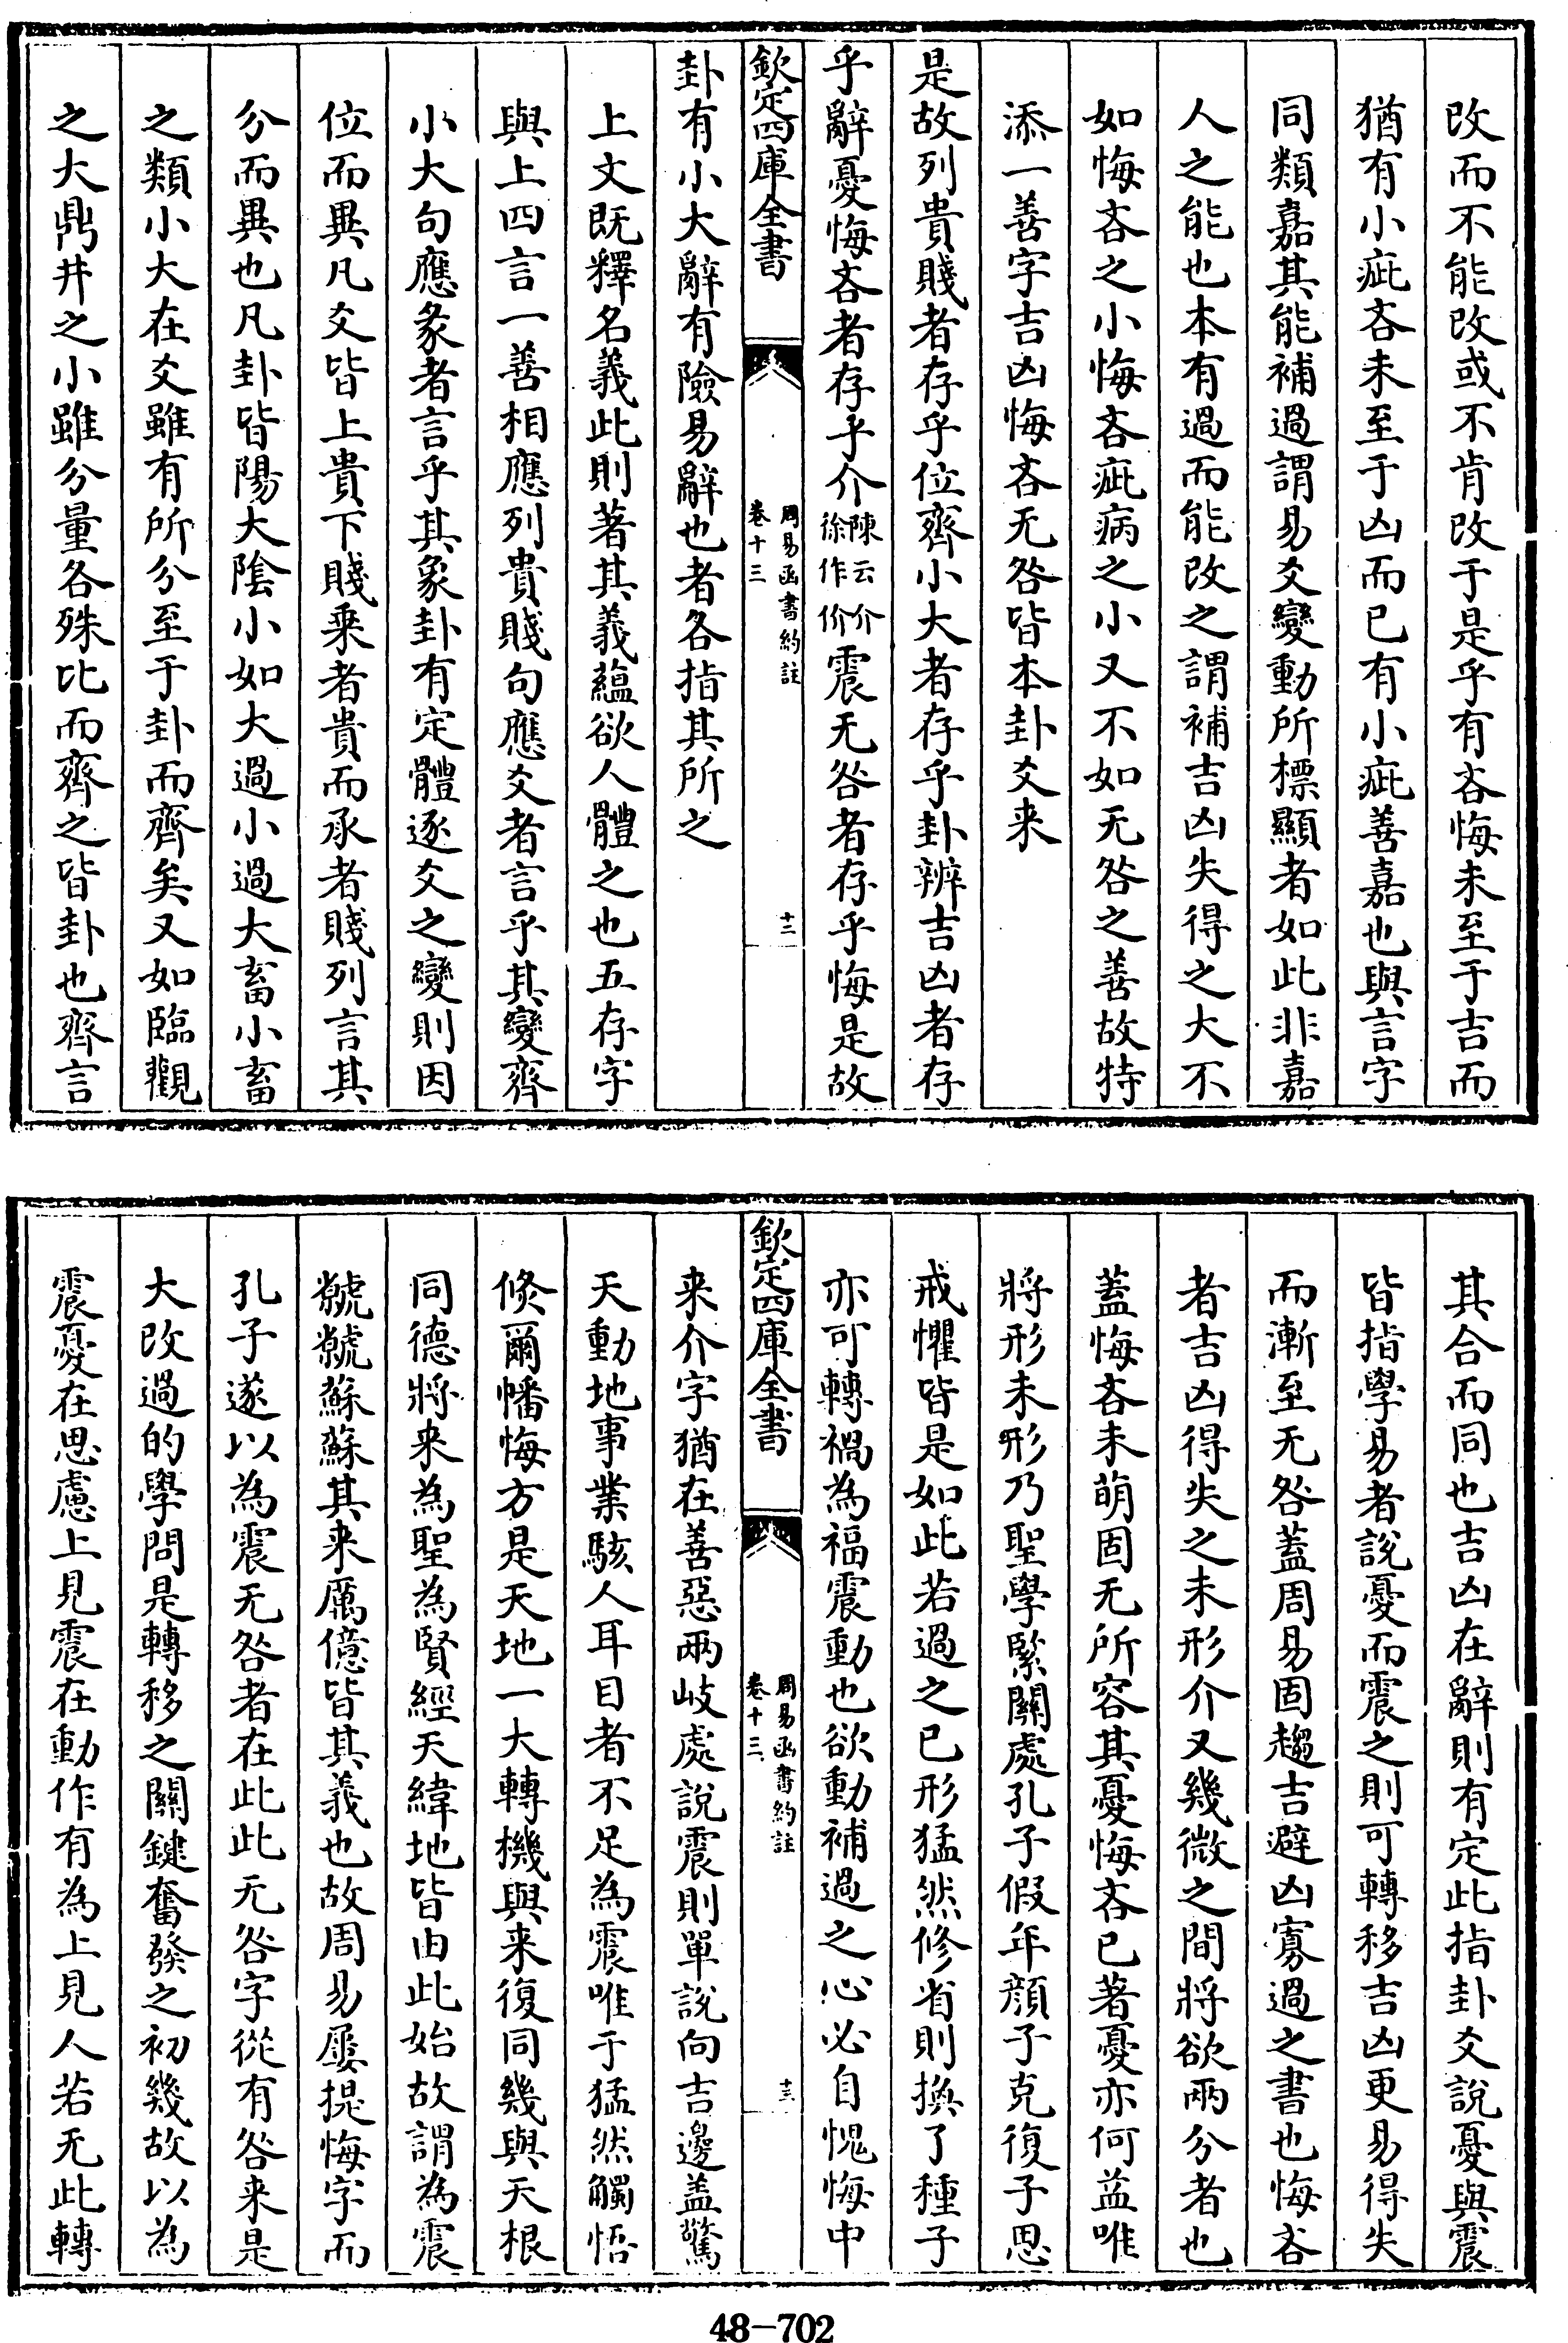 改而不能改或不肯改于是乎有吝悔未至于吉而
猶有小疵吝未至于凶而已有小疵善嘉也與言字
同類嘉其能補過謂易爻變動所標顯者如此非嘉
人之能也本有過而能改之謂補吉凶失得之大不
如悔吝之小悔吝疵病之小又不如无咎之善故特
添一善字吉凶悔吝无咎皆本卦爻来
是故列貴賤者存乎位齊小大者存乎卦辨吉凶者存
乎辭憂悔吝者存乎介陳云介徐作价震无咎者存乎悔是故
欽定四庫全書
周易函書約註
卷十三
十三
卦有小大辭有險易辭也者各指其所之
上文既釋名義此則著其義蘊欲人體之也五存字
與上四言一善相應列貴賤句應爻者言乎其變齊
小大句應彖者言乎其象卦有定體逐爻之變則因
位而異凡爻皆上貴下賤乘者貴而承者賤列言其
分而異也凡卦皆陽大陰小如大過小過大畜小畜
之類小大在爻雖有所分至于卦而齊矣又如臨觀
之大鼎井之小雖分量各殊比而齊之皆卦也齊言
其合而同也吉凶在辭則有定此指卦爻說憂與震
皆指學易者說憂而震之則可轉移吉凶更易得失
而漸至无咎蓋周易固趨吉避凶寡過之書也悔吝
者吉凶得失之未形介又幾微之間將欲兩分者也
蓋悔吝未萌固无所容其憂悔吝已著憂亦何益唯
將形未形乃聖學緊關處孔子假年顏子克復子思
戒懼皆是如此若過之已形猛然修省則換了種子
亦可轉禍為福震動也欲動補過之心必自愧悔中
欽定四庫全書
周易函書約註
卷十三
十三
来介字猶在善惡兩岐處說震則單說向吉邊盖驚
天動地事業駭人耳目者不足為震唯于猛然觸悟
倐爾幡悔方是天地一大轉機與来復同幾與天根
同德將来為聖為賢經天緯地皆由此始故謂為震
虩虩蘇蘇其来厲億皆其義也故周易屢提悔字而
孔子遂以為震无咎者在此此无咎字從有咎来是
大改過的學問是轉移之關鍵奮發之初幾故以為
震憂在思慮上見震在動作有為上見人若无此轉
48-702